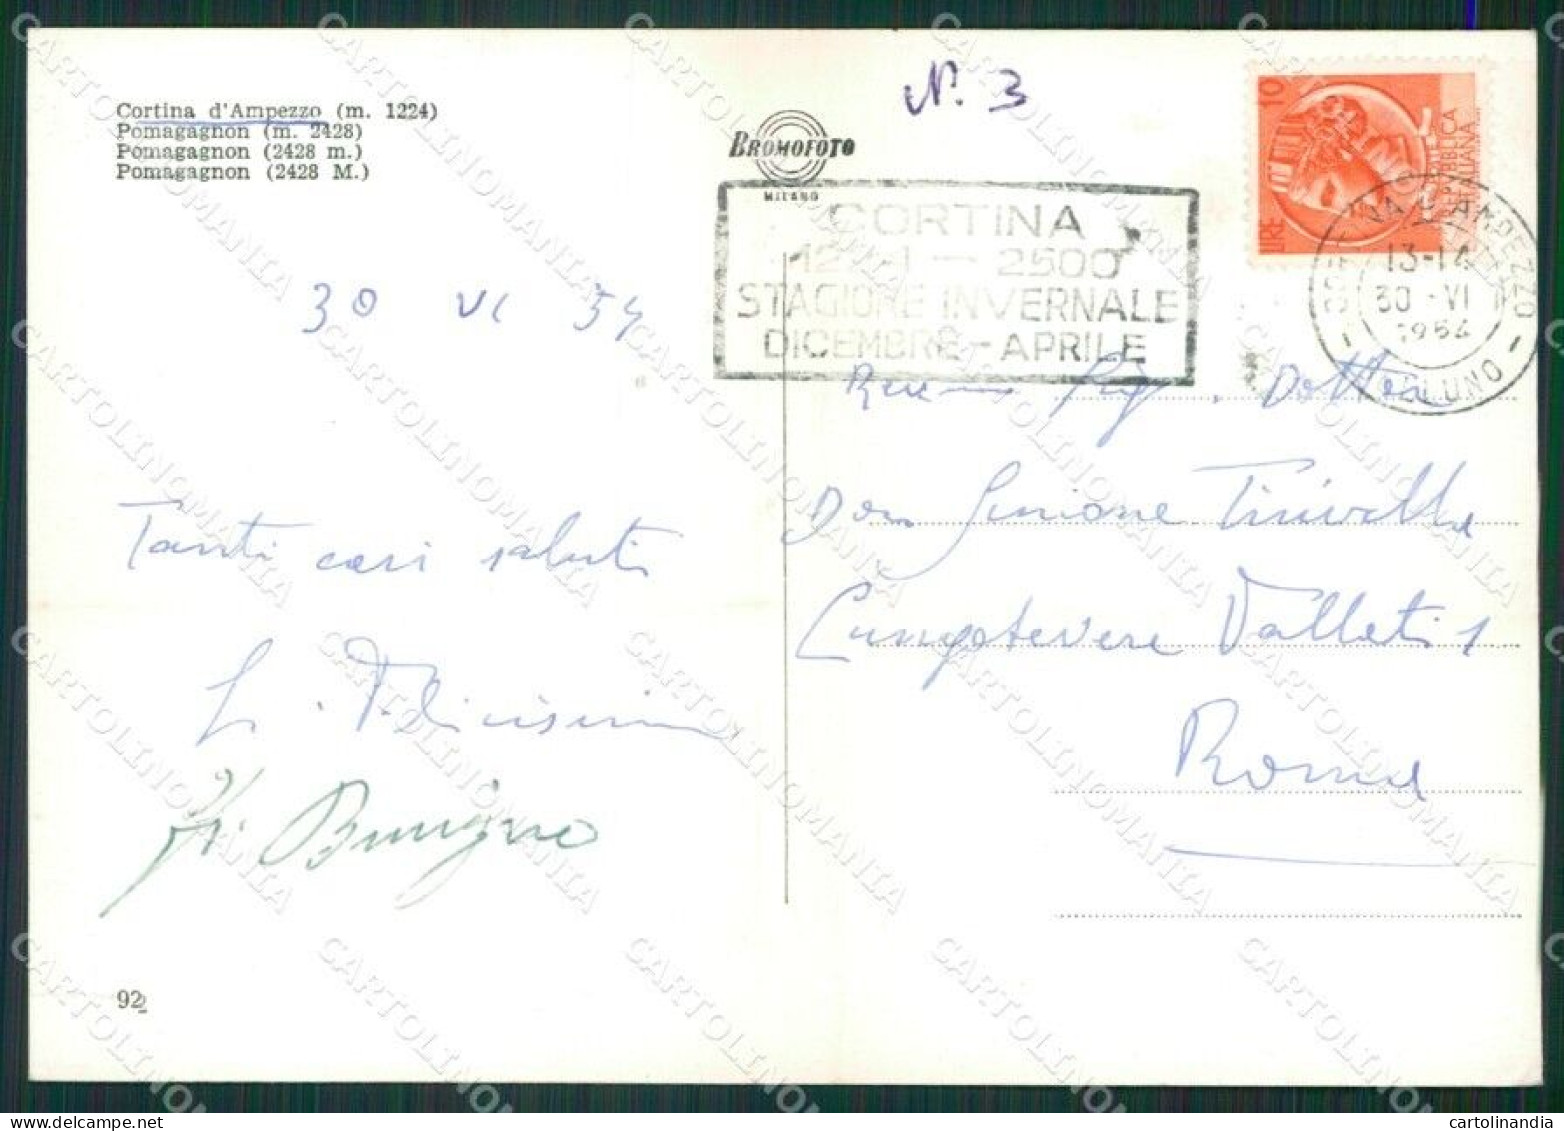 N. 3
Cortina d'Ampezzo (m. 1224)
Pomagagnon (m. 2428)
Pomagagnon (2428 m.)
Pomagagnon (2428 M.)
BROMOFOTO
MILANO
LIRE 10
REPUBBLICA
ITALIANA
CORTINA
2500
STAGIONE INVERNALE
DICEMBRE - APRILE
CORTINA D'AMPEZZO
13-14
30 - VI
1954
BELLUNO
30 VI 54
Dottor
Don Simone
Tanti cari saluti
Lungotevere Vallati 1
Roma
92
CARTOLINOMANIA
cartolinandia